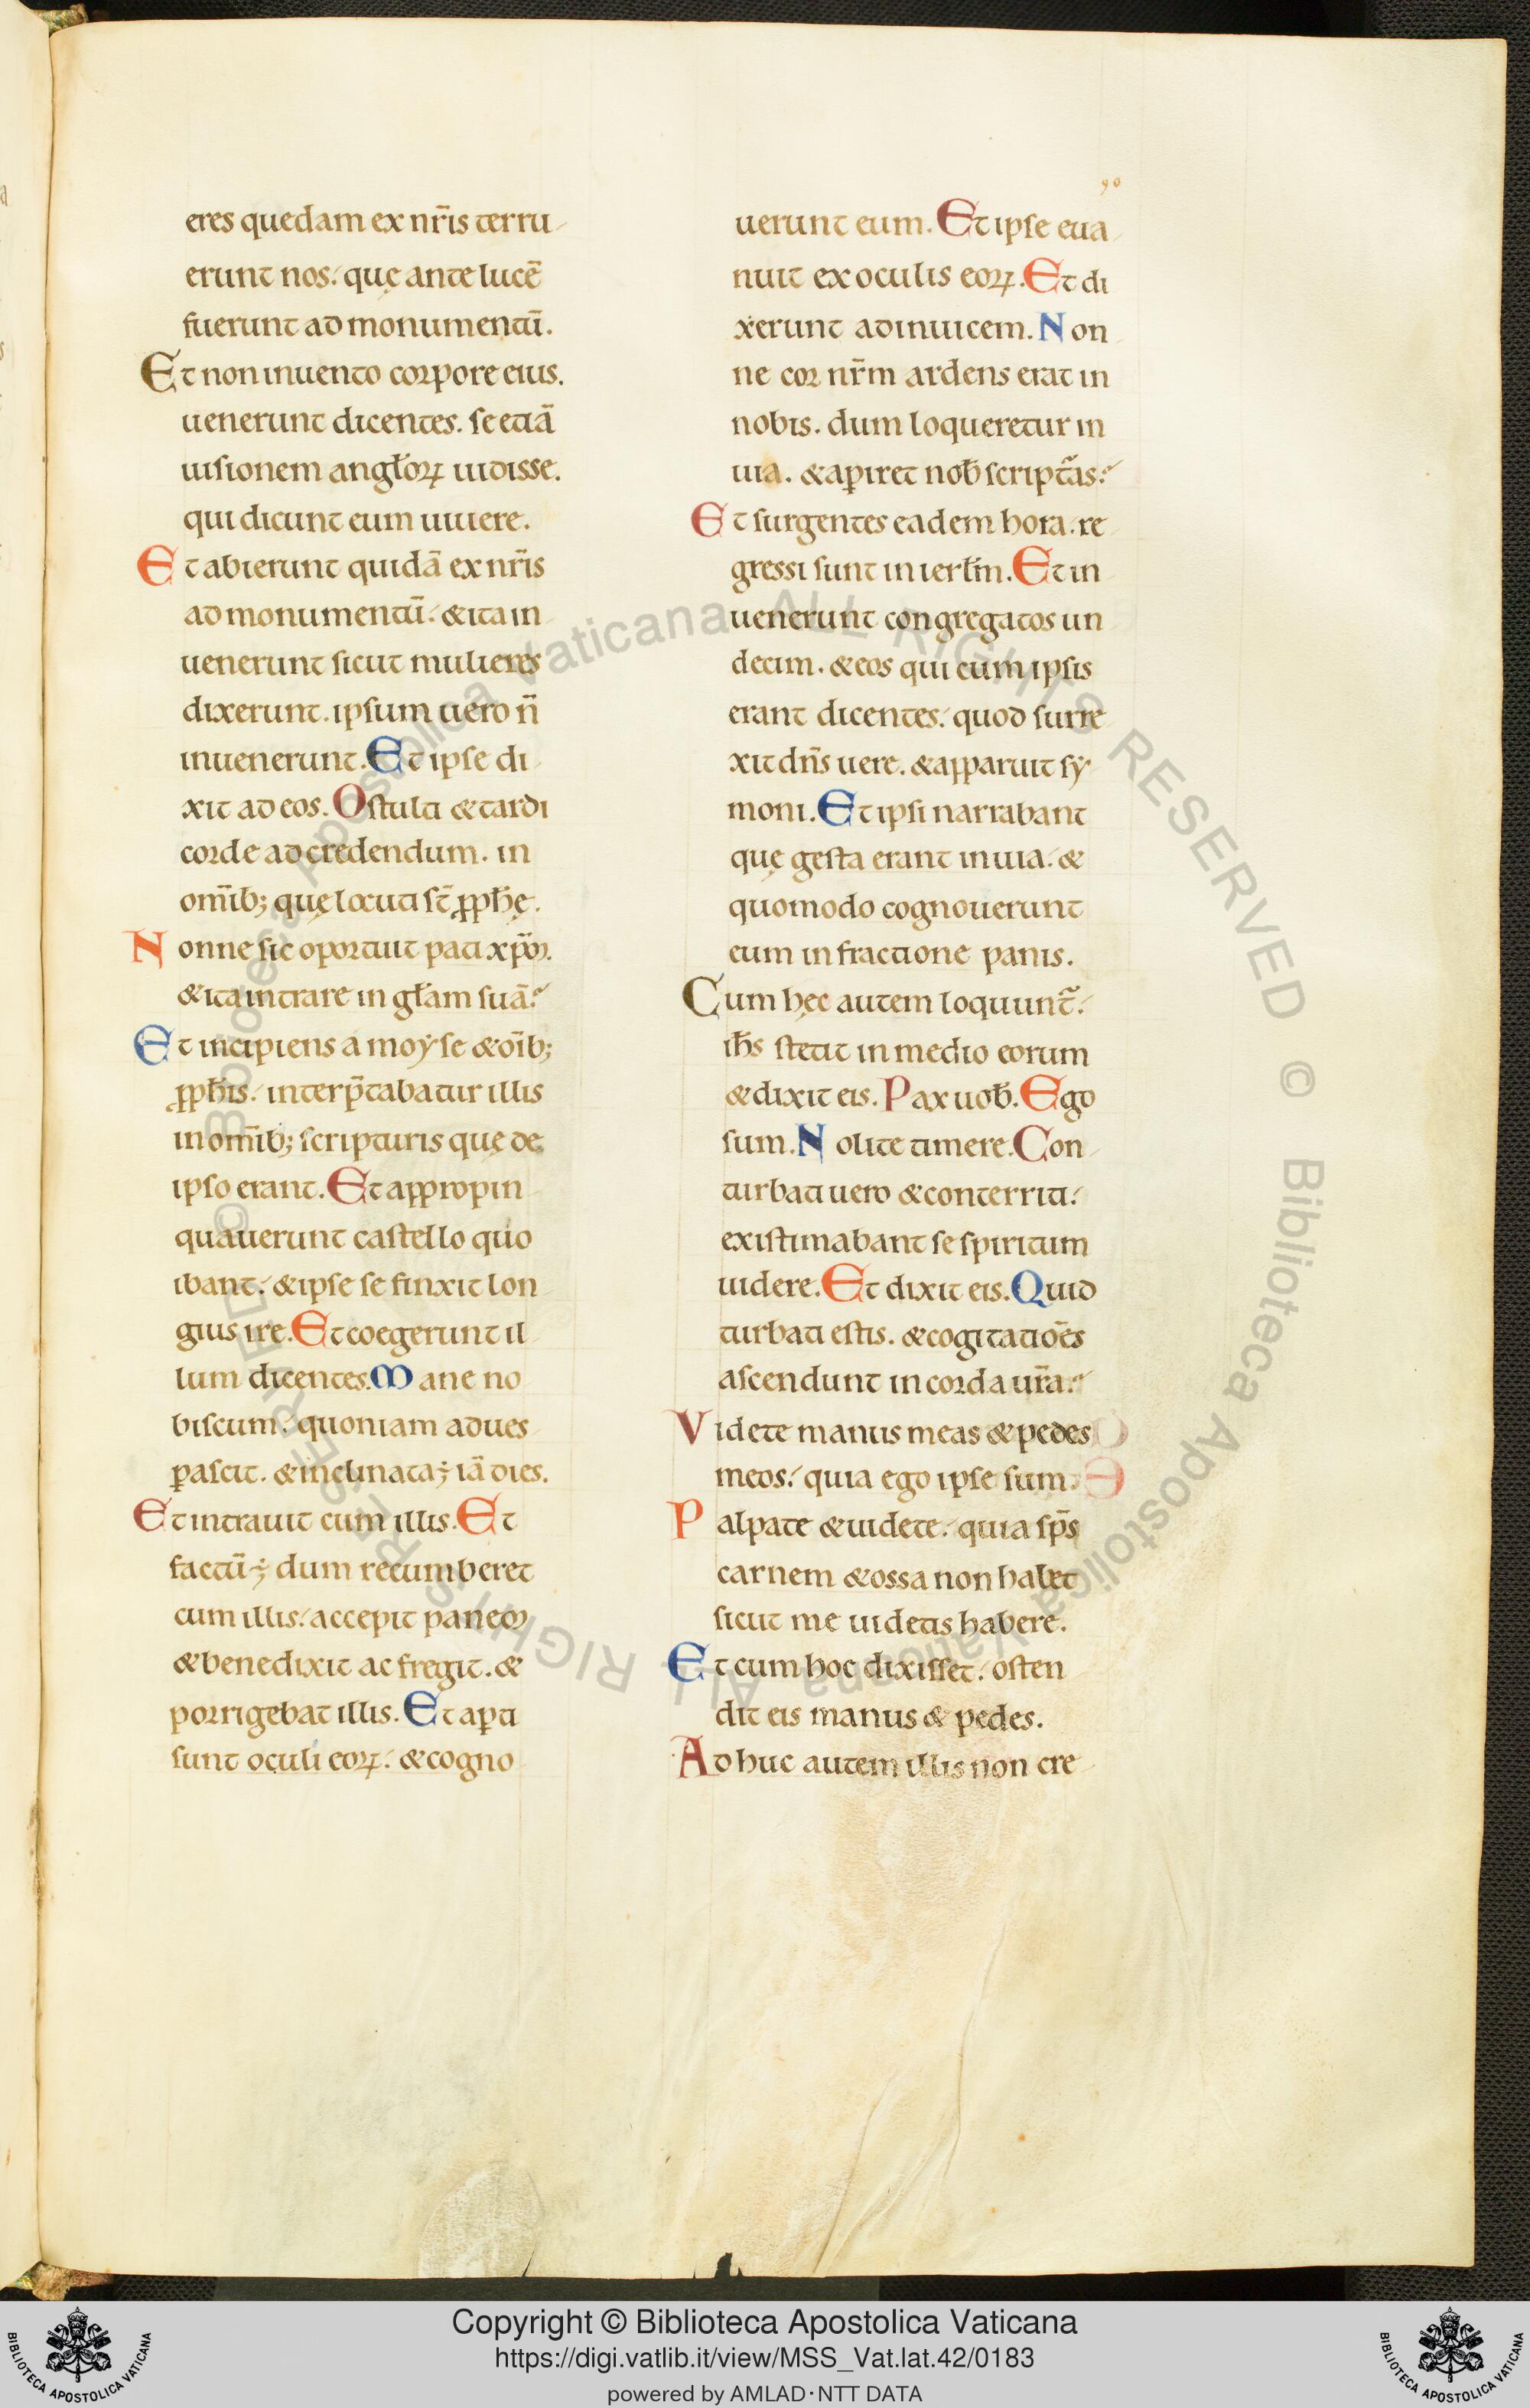 90
eres quedam ex nr̃is terru
erunt nos. quę ante lucē
fuerunt ad monumentū.
Et non inuento corpore eius.
uenerunt dicentes. se etiā
uisionem angłoꝝ uidisse.
qui dicunt eum uiuere.
Et abierunt quidā ex nr̃is
ad monumentū. & ita in
uenerunt sicut mulieres
dixerunt. ipsum uero ñ
inuenerunt. Et ipse di
xit ad eos. O stulti & tardi
corde ad credendum. in
om̄ib; quę locuti st̄ ꝓpħę.
Nonne sic oportuit pati xp̄m.
& ita intrare in głam suā?
Et incipiens a moẏse & oīb;
ꝓpħis. interp̄tabatur illis
in om̄ib; scripturis quę de
ipso erant. Et appropin
quauerunt castello quo
ibant. & ipse se finxit lon
gius ire. Et coegerunt il
lum dicentes. Mane no
biscum. quoniam adues
ꝑascit. & inclinata ÷ iā dies.
Et intrauit cum illis. Et
factū ÷ dum recumberet
cum illis. accepit panem
& benedixit ac fregit. &
porrigebat illis. Et aꝑti
sunt oculi eoꝝ. & cogno
uerunt eum. Et ipse eua
nuit ex oculis eoꝝ. Et di
xerunt adinuicem. Non
ne cor nr̃m ardens erat in
nobis. dum loqueretur in
uia. & aꝑiret nob̄ scriptas?
Et surgentes eadem hora. re
gressi sunt in ierłm. Et in
uenerunt congregatos un
decim. & eos qui cum ipsis
erant dicentes. quod surre
xit dñs uere. & apparuit sẏ
moni. Et ipsi narrabant
quę gesta erant in uia. &
quomodo cognouerunt
eum in fractione panis.
Cum hęc autem loquunt̃.
iħs stetit in medio eorum
& dixit eis. Pax uob̄. Ego
sum. Nolite timere. Con
turbati uero & conterriti.
existimabant se spiritum
uidere. Et dixit eis. Quid
turbati estis. & cogitatiōes
ascendunt in corda ur̃a?
Videte manus meas & pedes
meos. quia ego ipse sum.
Palpate & uidete. quia sp̄s
carnem & ossa non habet
sicut me uidetis habere.
Et cum hoc dixisset. osten
dit eis manus & pedes.
Ad huc autem illis non cre
© Biblioteca Apostolica Vaticana ALL RIGHTS RESERVED © Biblioteca Apostolica Vaticana ALL RIGHTS RESERVED
Copyright © Biblioteca Apostolica Vaticana
https://digi.vatlib.it/view/MSS_Vat.lat.42/0183
powered by AMLAD·NTT DATA
BIBLIOTECA APOSTOLICA VATICANA
BIBLIOTECA APOSTOLICA VATICANA